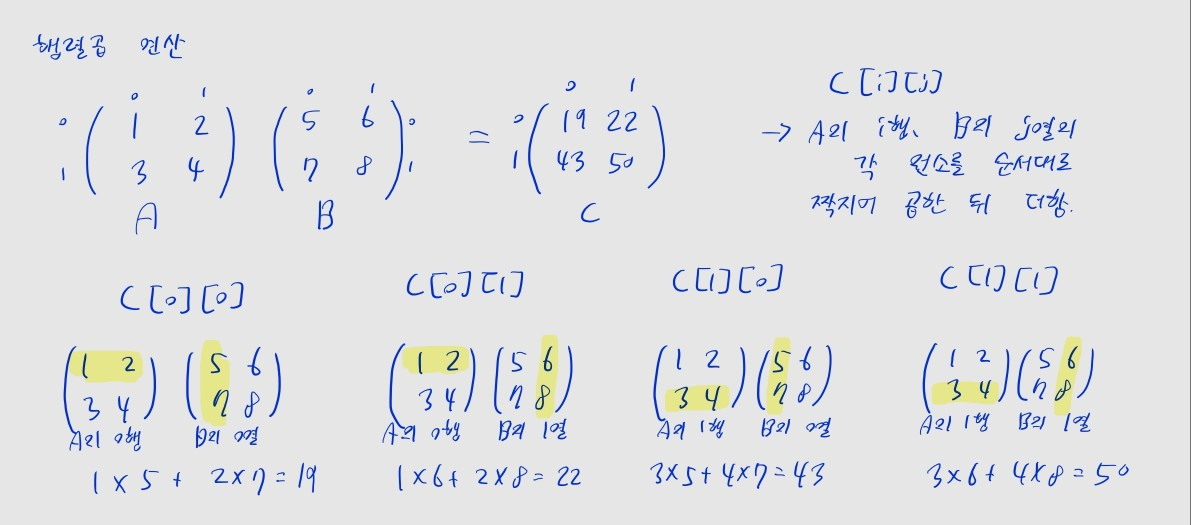 행렬곱 연산
0 1 0 1 0 1
0 ( 1 2 ) ( 5 6 ) 0 = 0 ( 19 22 )
1 ( 3 4 ) ( 7 8 ) 1 1 ( 43 50 )
A B C
C[i][j]
→ A의 i행, B의 j열의
각 원소를 순서대로
짝지어 곱한 뒤 더함.
C[0][0]
( 1 2 ) ( 5 6 )
( 3 4 ) ( 7 8 )
A의 0행 B의 0열
1 × 5 + 2 × 7 = 19
C[0][1]
( 1 2 ) ( 5 6 )
( 3 4 ) ( 7 8 )
A의 0행 B의 1열
1 × 6 + 2 × 8 = 22
C[1][0]
( 1 2 ) ( 5 6 )
( 3 4 ) ( 7 8 )
A의 1행 B의 0열
3 × 5 + 4 × 7 = 43
C[1][1]
( 1 2 ) ( 5 6 )
( 3 4 ) ( 7 8 )
A의 1행 B의 1열
3 × 6 + 4 × 8 = 50